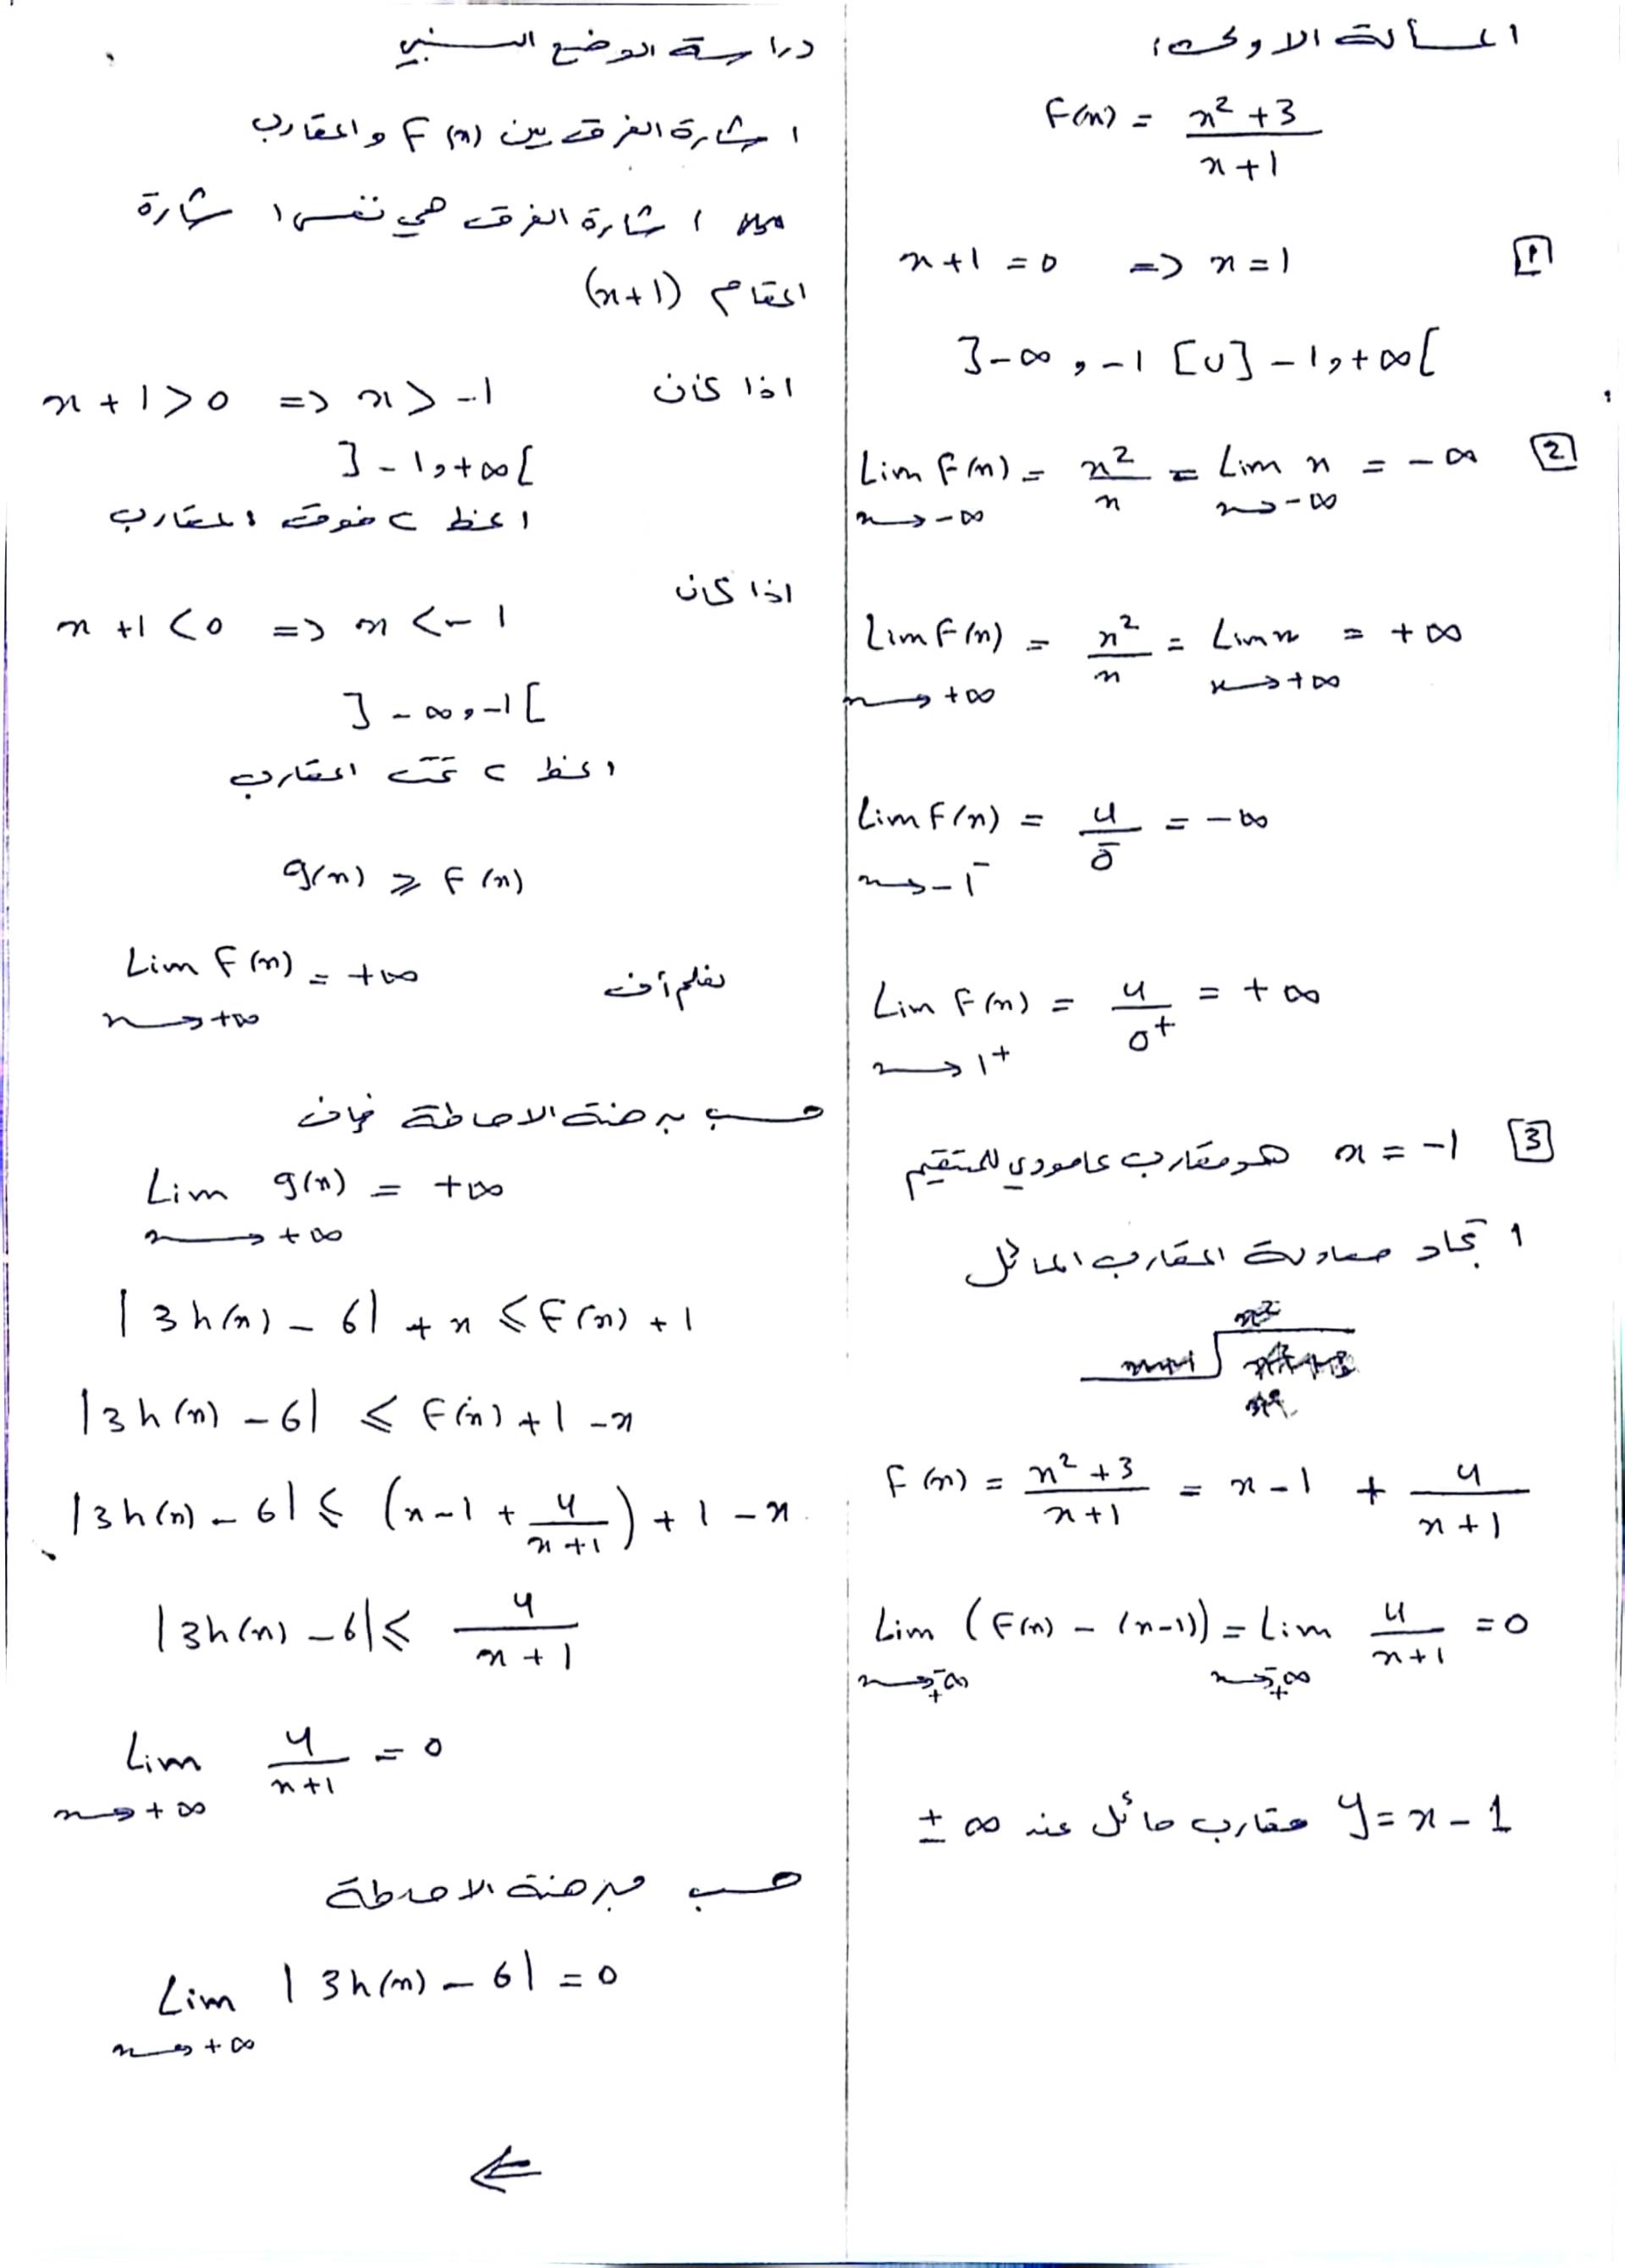 المسألة الاولى:
F(x) = x² + 3 / x + 1
1 x + 1 = 0 => x = 1
]-∞ , -1 [ ∪ ] -1 , +∞ [
2 Lim F(x) = x² / x = Lim x = -∞
x → -∞ x → -∞
Lim F(x) = x² / x = Lim x = +∞
x → +∞ x → +∞
Lim F(x) = 4 / 0⁻ = -∞
x → -1⁻
Lim F(x) = 4 / 0⁺ = +∞
x → 1⁺
3 x = -1 هو مقارب عامودي للمستقيم
ايجاد معادلة المقارب المائل
F(x) = x² + 3 / x + 1 = x - 1 + 4 / x + 1
Lim (F(x) - (x-1)) = Lim 4 / x+1 = 0
x → ±∞ x → ±∞
y = x - 1 مقارب مائل عند ± ∞
دراسة الوضع النسبي
اشارة الفرق بين F(x) والمقارب
اشارة الفرق هي نفس اشارة
المقام (x+1)
اذا كان x + 1 > 0 => x > -1
] -1 , +∞ [
الخط C فوق المقارب
اذا كان x + 1 < 0 => x < -1
] -∞ , -1 [
الخط C تحت المقارب
g(x) ≥ F(x)
نعلم أن Lim F(x) = +∞
x → +∞
حسب برهنة الاحاطة فإن
Lim g(x) = +∞
x → +∞
| 3h(x) - 6 | + x ≤ F(x) + 1
| 3h(x) - 6 | ≤ F(x) + 1 - x
| 3h(x) - 6 | ≤ (x - 1 + 4 / x+1) + 1 - x
| 3h(x) - 6 | ≤ 4 / x + 1
Lim 4 / x+1 = 0
x → +∞
حسب مبرهنة الاحاطة
Lim | 3h(x) - 6 | = 0
x → +∞
⇐